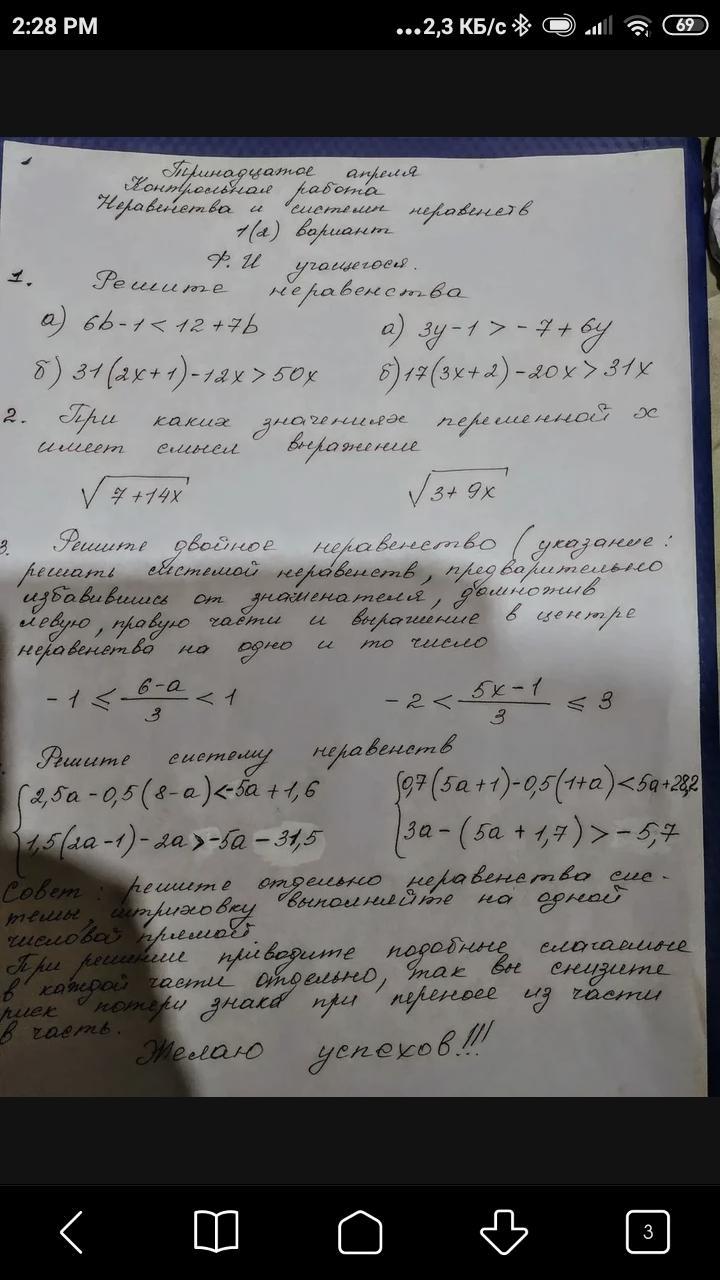 2:28 PM
...2,3 КБ/с
69
Тринадцатое апреля
Контрольная работа
Неравенства и системы неравенств
1(2) вариант
Ф. И учащегося.
1. Решите неравенства
а) 6b-1<12+7b а) 3y-1>-7+6y
б) 31(2x+1)-12x>50x б) 17(3x+2)-20x>31x
2. При каких значениях переменной x
имеет смысл выражение
√7+14x √3+9x
3. Решите двойное неравенство (указание:
решать системой неравенств, предварительно
избавившись от знаменателя, домножив
левую, правую части и выражение в центре
неравенства на одно и то число
-1 ≤ 6-a/3 < 1 -2 < 5x-1/3 ≤ 3
Решите систему неравенств
{2,5a-0,5(8-a)<-5a+1,6 {0,7(5a+1)-0,5(1+a)<5a+28,2
1,5(2a-1)-2a>-5a-31,5 3a-(5a+1,7)>-5,7
Совет: решите отдельно неравенства сис-
темы, штриховку выполняйте на одной
числовой прямой.
При решении приводите подобные слагаемые
в каждой части отдельно, так вы снизите
риск потери знака при переносе из части
в часть.
Желаю успехов!!!
3